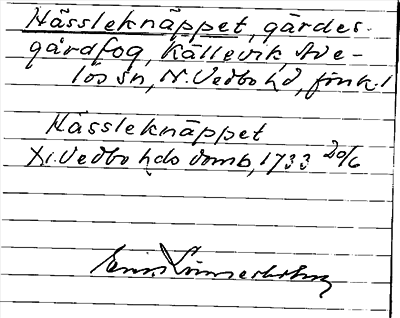 Hässleknäppet, gärdes-
gårdfog, Källevik, Ade-
lös sn, N. Vedbo hd, förk. 1
Hässleknäppet
N. Vedbo hds domb, 1733 20/6